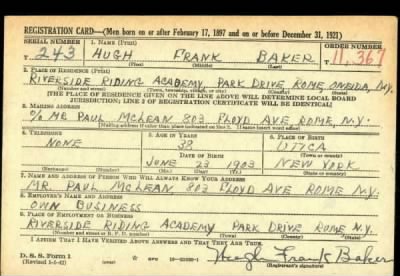 REGISTRATION CARD—(Men born on or after February 17, 1897 and on or before December 31, 1921)
SERIAL NUMBER 1. NAME (Print) ORDER NUMBER
T 243 HUGH FRANK BAKER T 11,367
(First) (Middle) (Last)
2. PLACE OF RESIDENCE (Print)
RIVERSIDE RIDING ACADEMY PARK DRIVE ROME, ONEIDA, N.Y.
(Number and street) (Town, township, village, or city) (County) (State)
[THE PLACE OF RESIDENCE GIVEN ON THE LINE ABOVE WILL DETERMINE LOCAL BOARD
JURISDICTION; LINE 2 OF REGISTRATION CERTIFICATE WILL BE IDENTICAL]
3. MAILING ADDRESS
c/o MR PAUL McLEAN 803 FLOYD AVE ROME, N.Y.
[Mailing address if other than place indicated on line 2. If same insert word same]
4. TELEPHONE 5. AGE IN YEARS 6. PLACE OF BIRTH
NONE 38 UTICA
DATE OF BIRTH (Town or county)
JUNE 23 1903 NEW YORK
(Mo.) (Day) (Yr.) (State or country)
7. NAME AND ADDRESS OF PERSON WHO WILL ALWAYS KNOW YOUR ADDRESS
MR. PAUL McLEAN, 803 FLOYD AVE ROME N.Y.
8. EMPLOYER'S NAME AND ADDRESS
OWN BUSINESS
9. PLACE OF EMPLOYMENT OR BUSINESS
RIVERSIDE RIDING ACADEMY PARK DRIVE ROME N.Y.
(Number and street or R. F. D. number) (Town) (County) (State)
I AFFIRM THAT I HAVE VERIFIED ABOVE ANSWERS AND THAT THEY ARE TRUE.
D. S. S. Form 1
(Revised 1-6-42) (over) Hugh Frank Baker
(Registrant's signature)